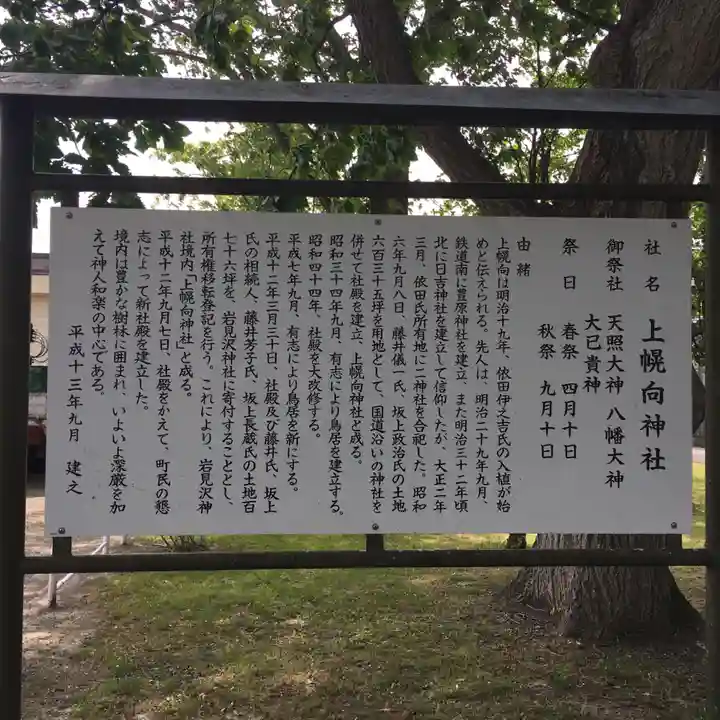 社名　上幌向神社
御祭社　天照大神　八幡大神
大已貴神
祭日　春祭　四月十日
秋祭　九月十日
由緒
上幌向は明治十九年、依田伊之吉氏の入植が始
めと伝えられる。先人は、明治二十九年九月、
鉄道南に豊原神社を建立、また明治三十二年頃
北に日吉神社を建立して信仰したが、大正二年
三月、依田氏所有地に二神社を合祀した。昭和
六年九月八日、藤井儀一氏、坂上政治氏の土地
六百三十五坪を用地として、国道沿いの神社を
併せて社殿を建立、上幌向神社と成る。
昭和三十四年九月、有志により鳥居を建立する。
昭和四十四年、社殿を大改修する。
平成七年九月、有志により鳥居を新にする。
平成十二年三月三十日、社殿及び藤井氏、坂上
氏の相続人、藤井芳子氏、坂上長蔵氏の土地百
七十六坪を、岩見沢神社に寄付することとし、
所有権移転登記を行う。これにより、岩見沢神
社境内「上幌向神社」と成る。
平成十二年九月七日、社殿をかえて、町民の懇
志によって新社殿を建立した。
境内は豊かな樹林に囲まれ、いよいよ深厳を加
えて神人和楽の中心である。
平成十三年九月　建之